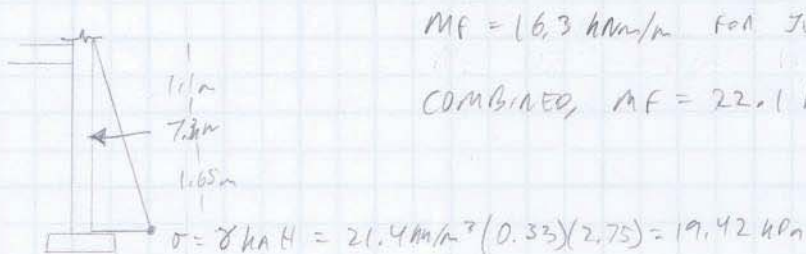 MF = 16.3 kNm/m FOR
COMBINED, MF = 22.1
1.1m
1.65m
σ = γ ka H = 21.4 kN/m³ (0.33)(2.75) = 19.42 kPa